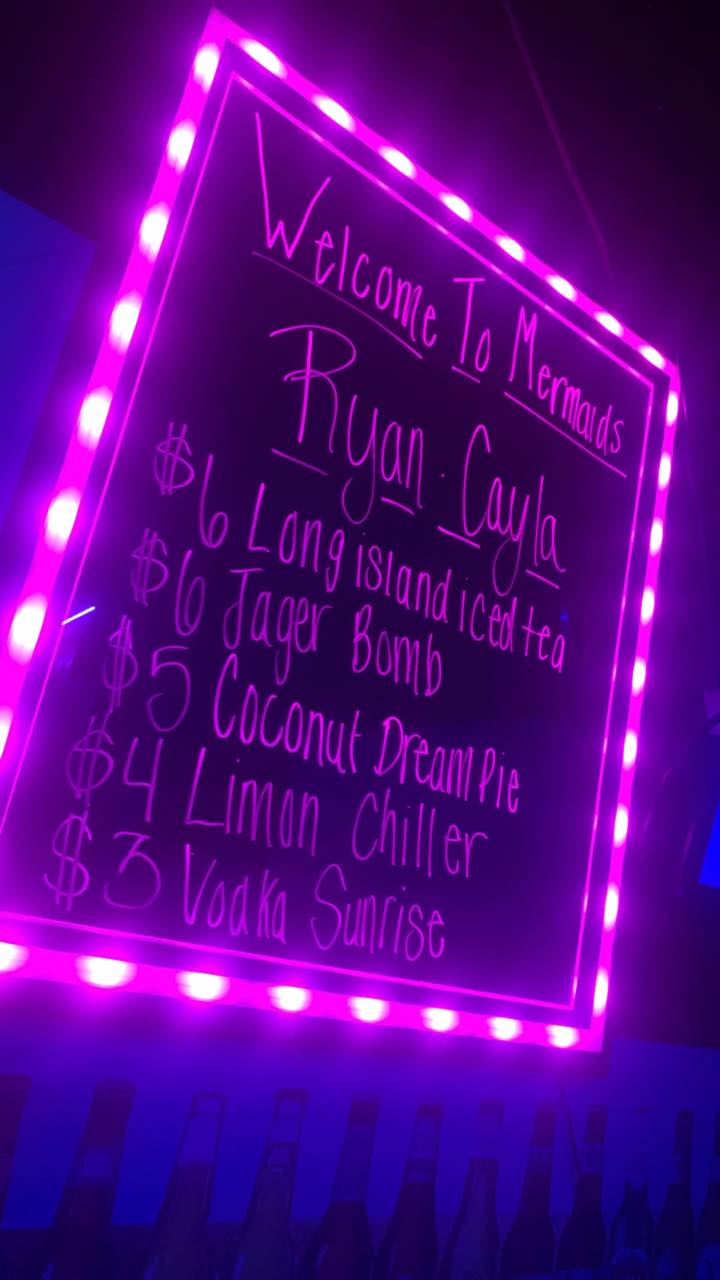 Welcome To Mermaids
Ryan · Cayla
$6 Long island iced tea
$6 Jager Bomb
$5 Coconut Dream Pie
$4 Limon Chiller
$3 Vodka Sunrise